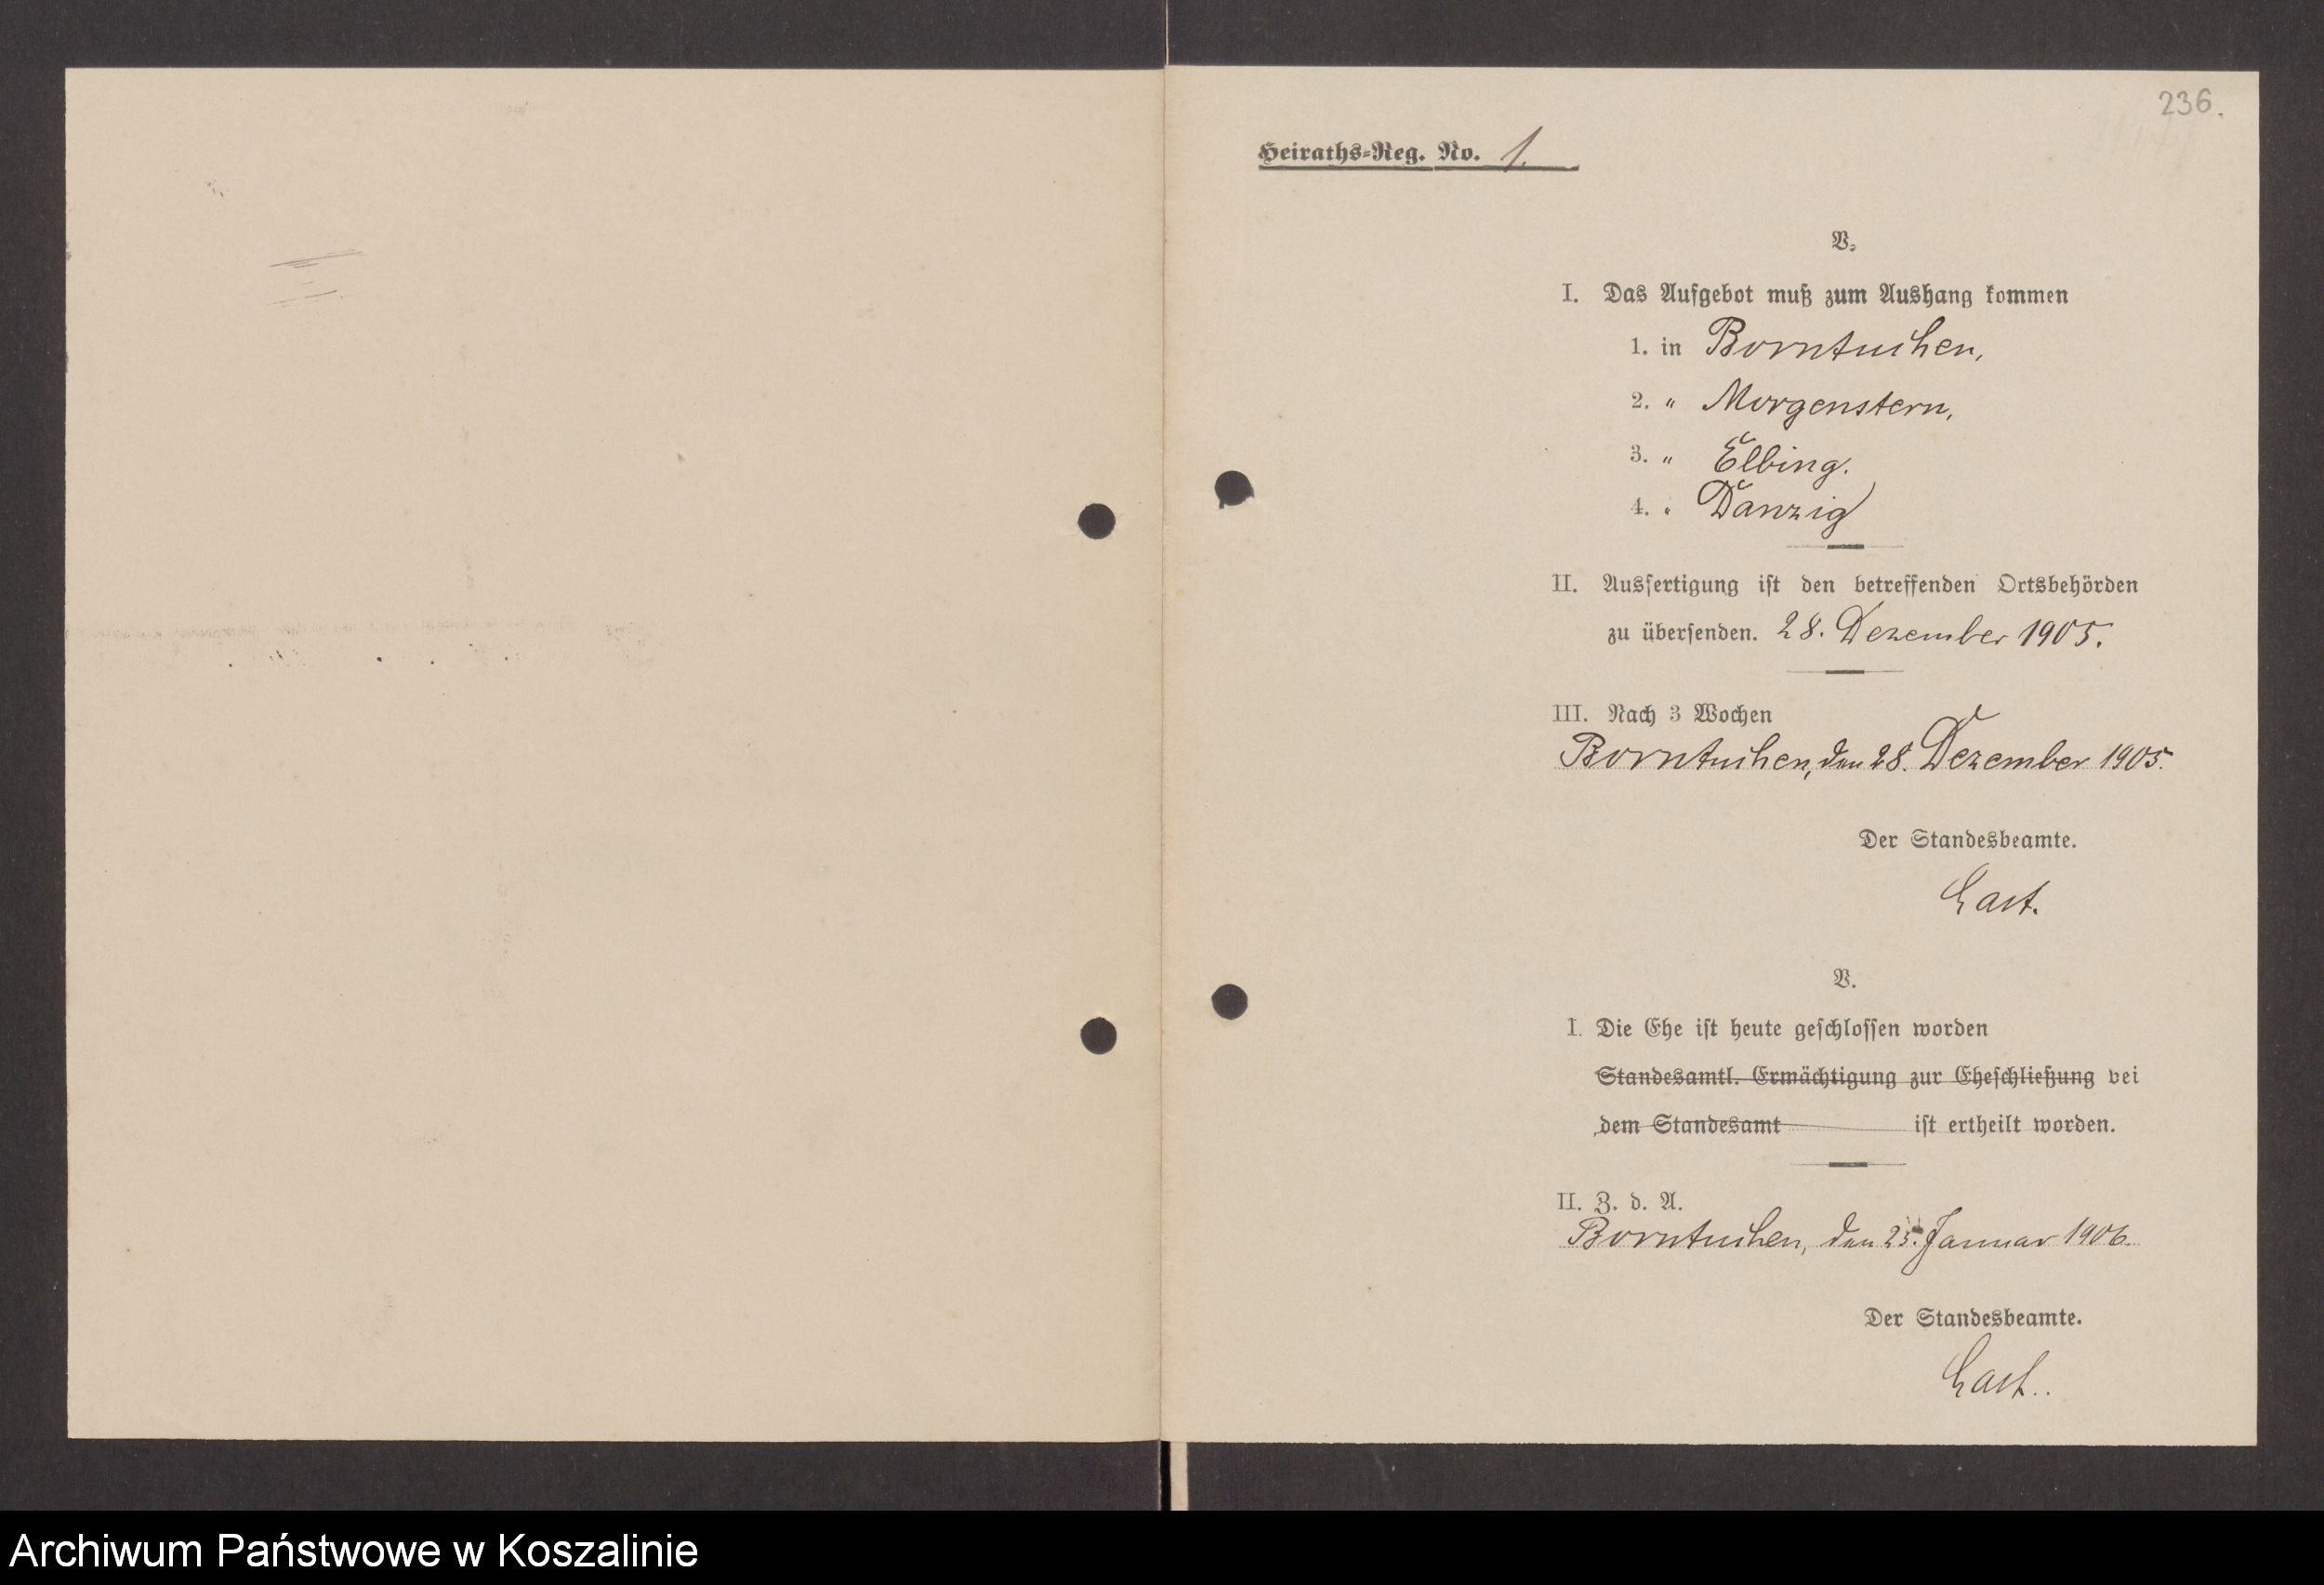 236.
Heiraths-Reg. No. 1.
V.
I. Das Aufgebot muß zum Aushang kommen
1. in Borntuchen,
2. " Morgenstern,
3. " Elbing.
4. " Danzig
II. Ausfertigung ist den betreffenden Ortsbehörden
zu übersenden. 28. Dezember 1905.
III. Nach 3 Wochen
Borntuchen, den 28. Dezember 1905.
Der Standesbeamte.
V.
I. Die Ehe ist heute geschlossen worden
Standesamtl. Ermächtigung zur Eheschließung bei
dem Standesamt ist ertheilt worden.
II. Z. d. A.
Borntuchen, den 25. Januar 1906.
Der Standesbeamte.
Archiwum Państwowe w Koszalinie